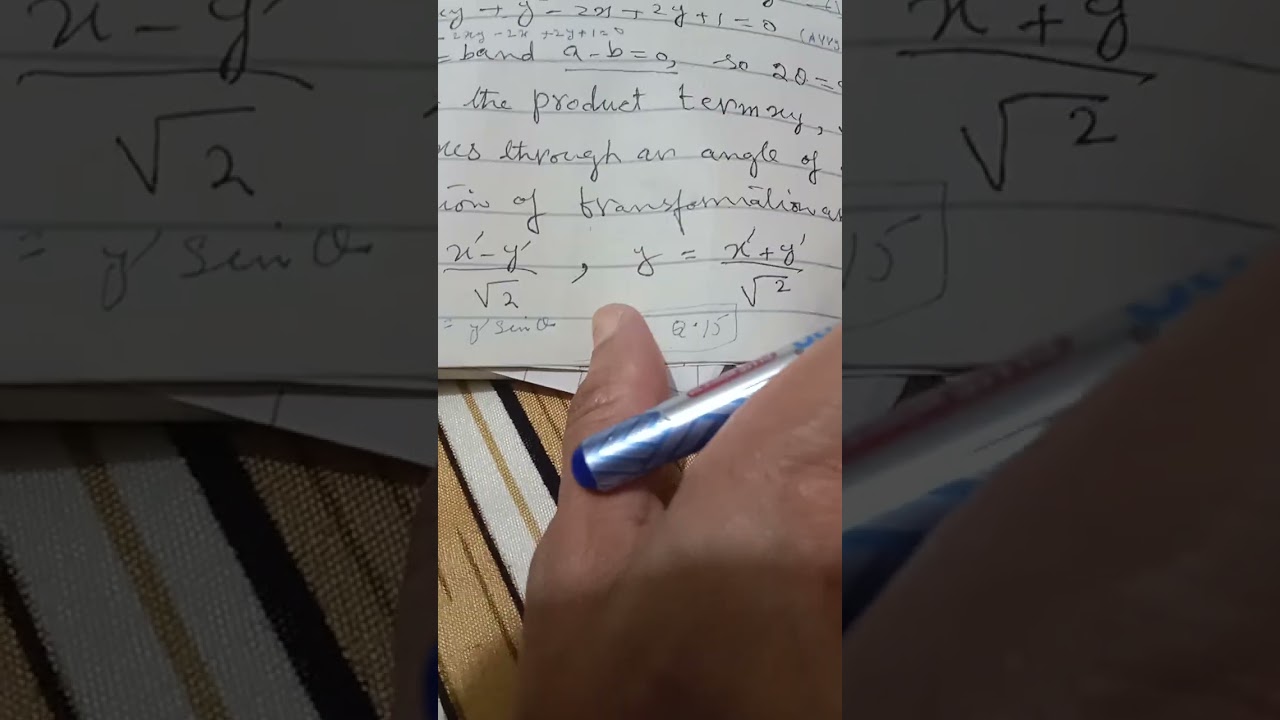 xy + y² - 2x + 2y + 1 = 0
- 2xy - 2x + 2y + 1 = 0
= b and a - b = 0, so 2θ =
the product term xy,
through an angle of
of transformation
x' - y' / √2 , y = x' + y' / √2
= y' sin θ Q.15